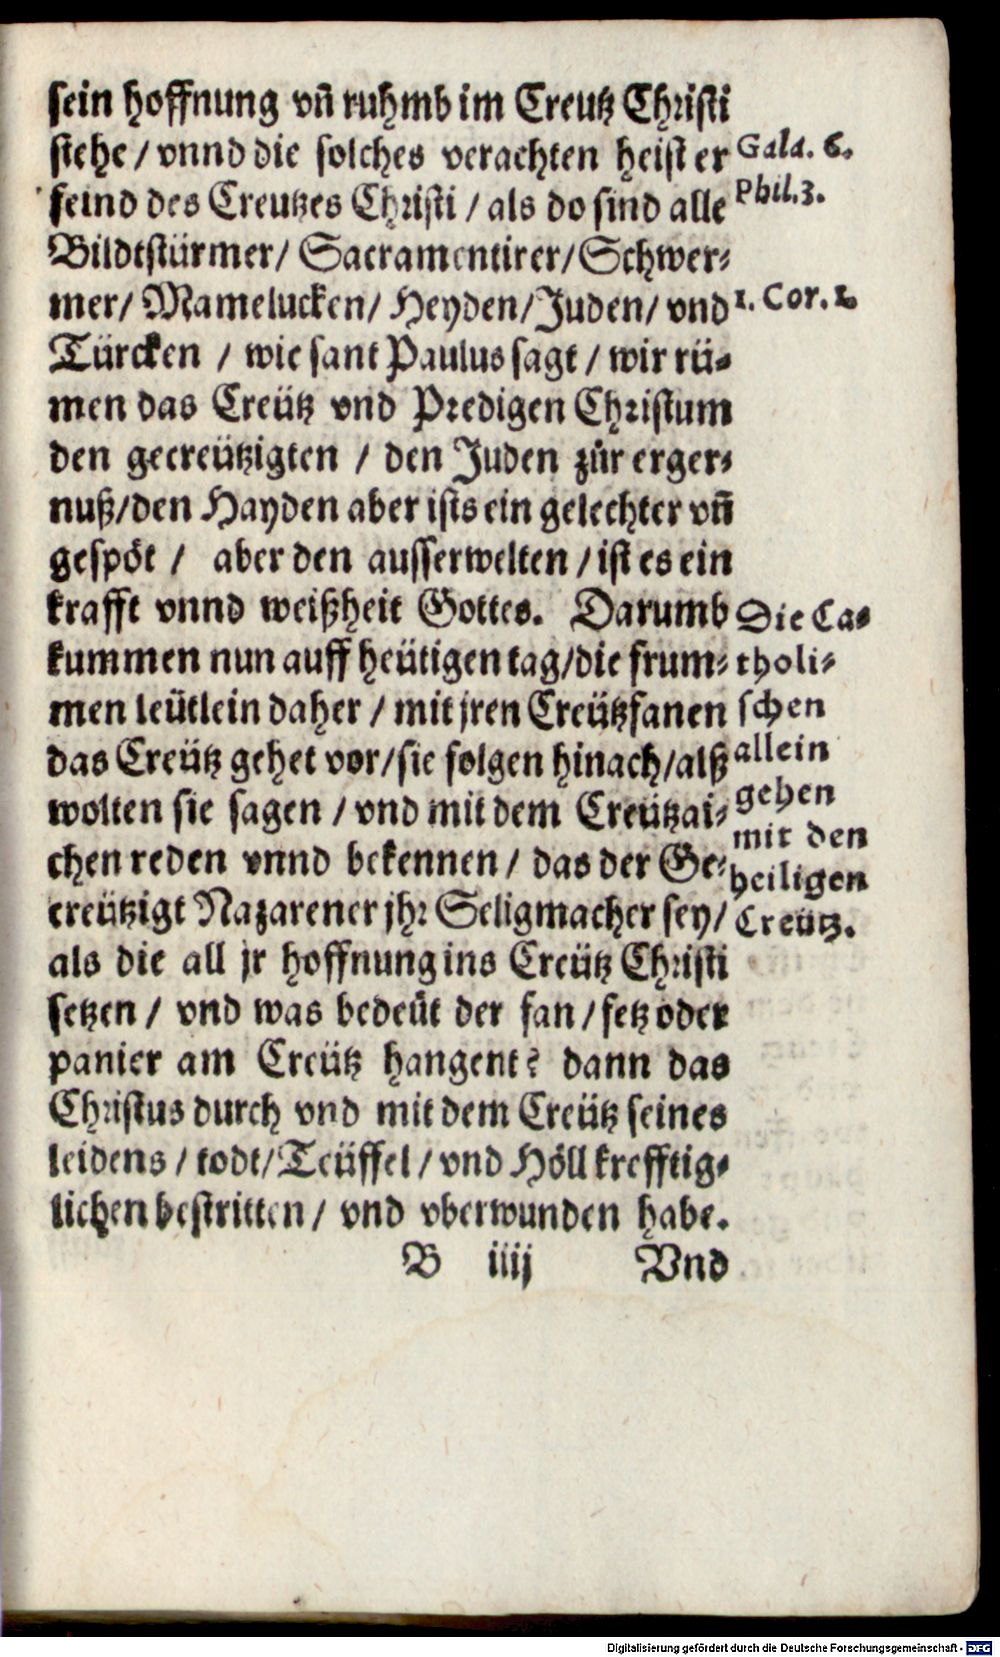 sein hoffnung vñ ruhmb im Creutz Christi
stehe / vnnd die solches verachten heist er
feind des Creutzes Christi / als do sind alle
Bildtstürmer / Sacramentirer / Schwer⸗
mer / Mamelucken / Heyden / Juden / vnd
Türcken / wie sant Paulus sagt / wir rü⸗
men das Creütz vnd Predigen Christum
den gecreützigten / den Juden zür erger⸗
nuß / den Hayden aber ists ein gelechter vñ
gespöt / aber den ausserwelten / ist es ein
krafft vnnd weißheit Gottes. Darumb
kummen nun auff heütigen tag / die frum⸗
men leütlein daher / mit jren Creützfanen
das Creütz gehet vor / sie folgen hinach / alß
wolten sie sagen / vnd mit dem Creützai⸗
chen reden vnnd bekennen / das der Ge⸗
creützigt Nazarener jhr Seligmacher sey /
als die all jr hoffnung ins Creütz Christi
setzen / vnd was bedeüt der fan / fetz oder
panier am Creütz hangent? dann das
Christus durch vnd mit dem Creütz seines
leidens / todt / Teüffel / vnd Höll krefftig⸗
lichen bestritten / vnd vberwunden habe.
B iiij Vnd
Gala. 6.
Phil. 3.
1. Cor. 1.
Die Ca⸗
tholi⸗
schen
allein
gehen
mit den
heiligen
Creütz.
Digitalisierung gefördert durch die Deutsche Forschungsgemeinschaft - DFG